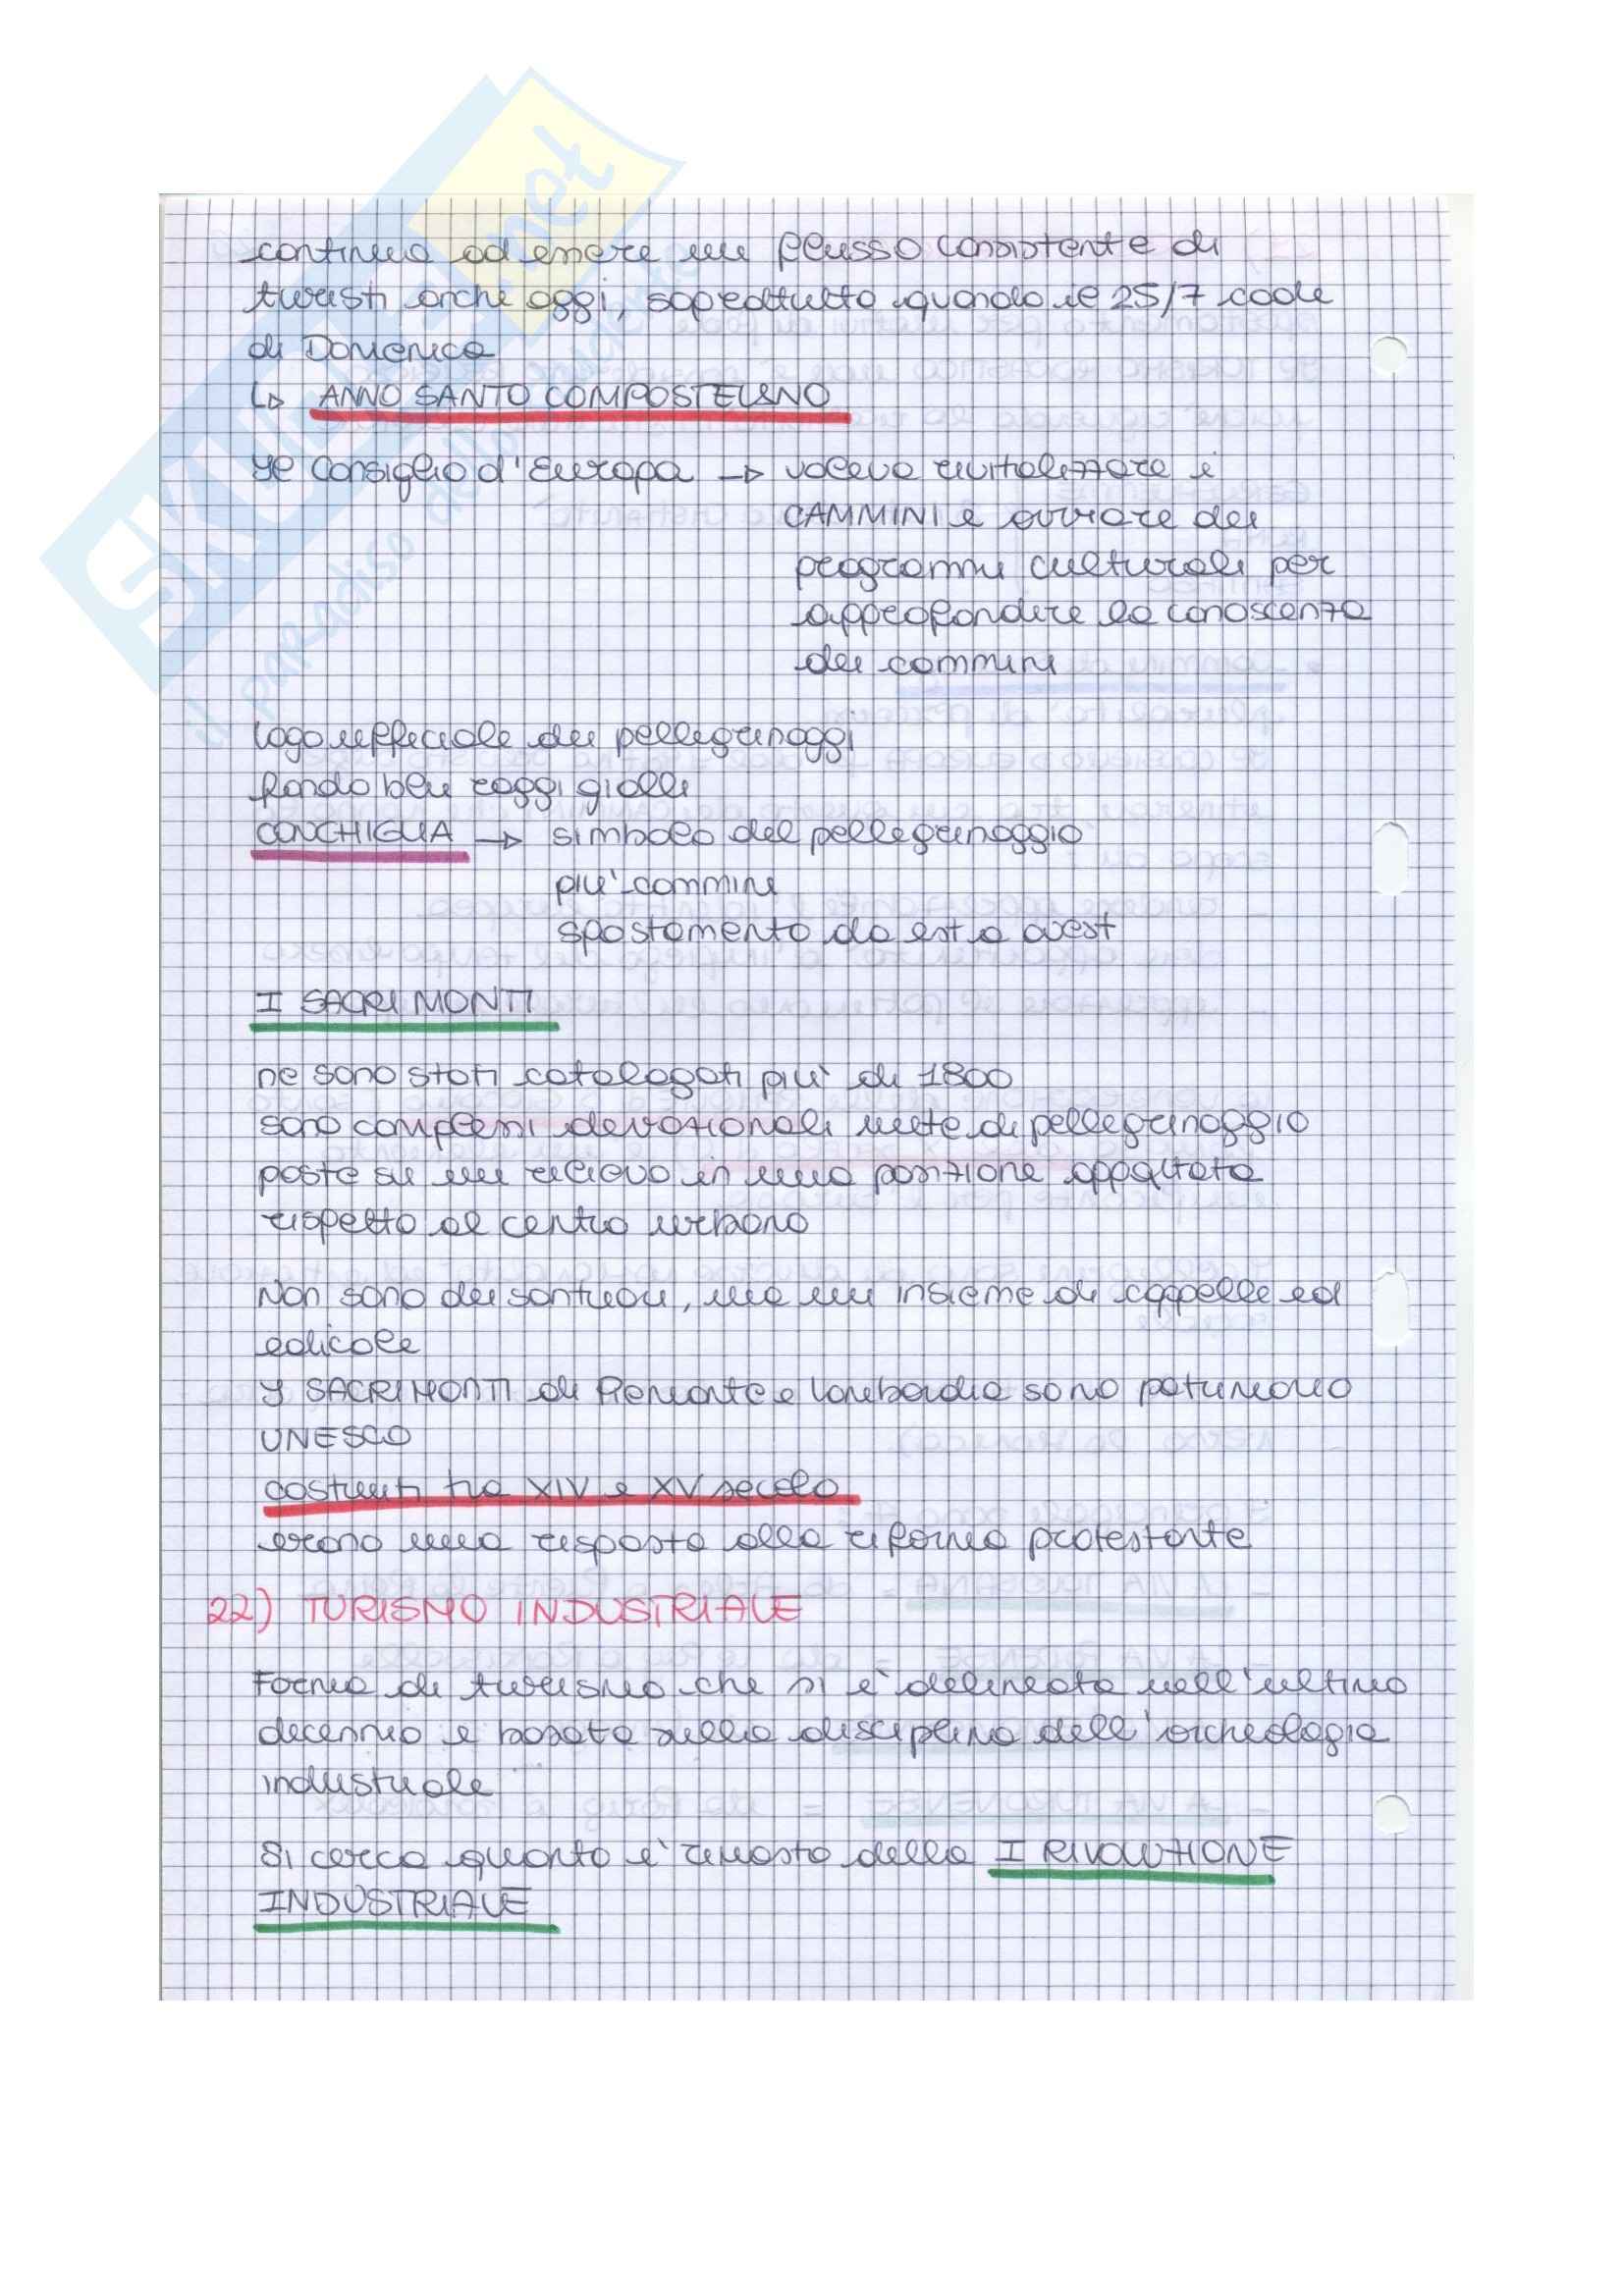 SKUOLA.net
il paradiso dello studente
continua ad essere un flusso consistente di
turisti anche oggi, sopratutto quando il 25/7 cade
di Domenica
↳ ANNO SANTO COMPOSTELANO
Il Consiglio d'Europa → voleva rivitalizzare i
CAMMINI e avviare dei
programmi culturali per
approfondire la conoscenza
dei cammini
logo ufficiale dei pellegrinaggi
fondo blu raggi gialli
CONCHIGLIA → simbolo del pellegrinaggio
piu' cammini
spostamento da est a ovest
I SACRI MONTI
ne sono stati catalogati piu' di 1800
sono complessi devozionali mete di pellegrinaggio
poste su un rilievo in una posizione appartata
rispetto al centro urbano
Non sono dei santuari, ma un insieme di cappelle ed
edicole
I SACRI MONTI di Piemonte e Lombardia sono patrimonio
UNESCO
costruiti tra XIV e XV secolo
erano una risposta alla riforma protestante
22) TURISMO INDUSTRIALE
Forma di turismo che si e' delineata nell'ultimo
decennio e basata sulla disciplina dell'archeologia
industriale
Si cerca quanto e' rimasto della I RIVOLUZIONE
INDUSTRIALE